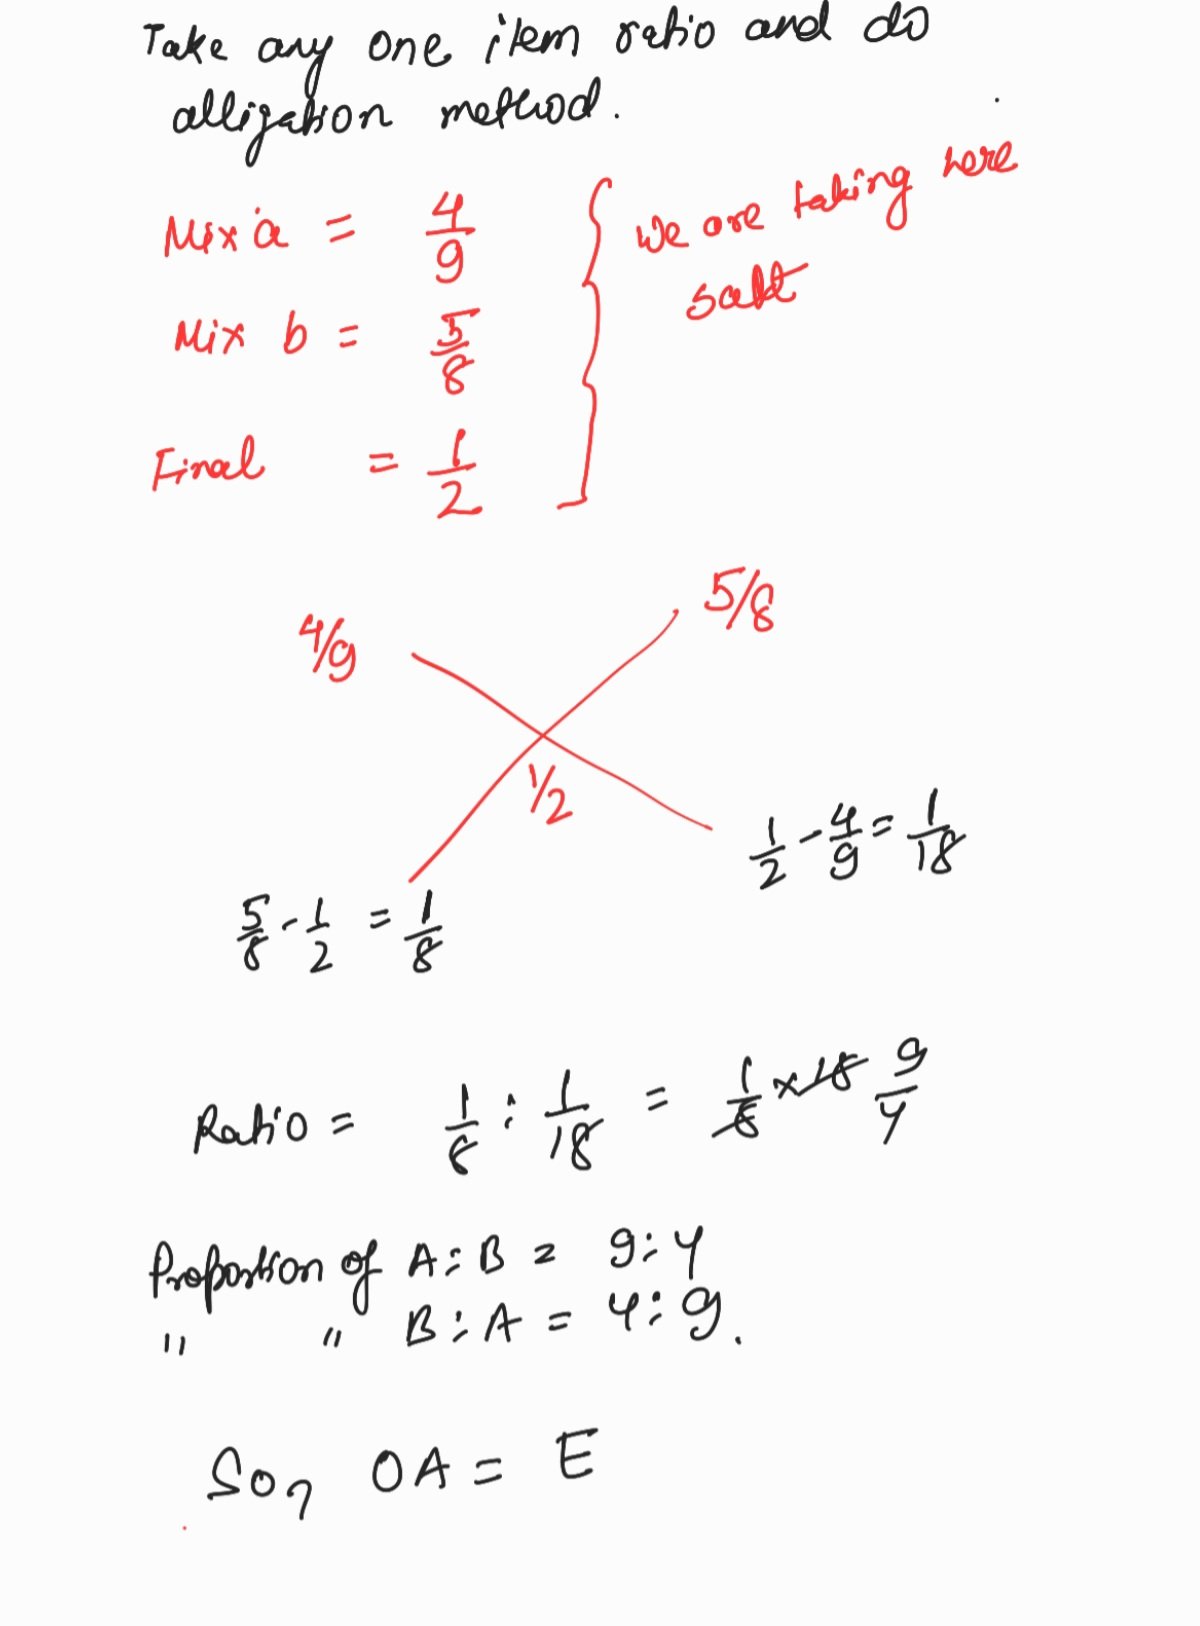 Take any one item ratio and do
alligation method.
Mix a = 4/9
We are taking here
salt
Mix b = 5/8
Final = 1/2
4/9 5/8
1/2
1/2 - 4/9 = 1/18
5/8 - 1/2 = 1/8
Ratio = 1/8 : 1/18 = 1/8 × 18 9/4
Proportion of A:B = 9:4
" " B:A = 4:9.
So, OA = E